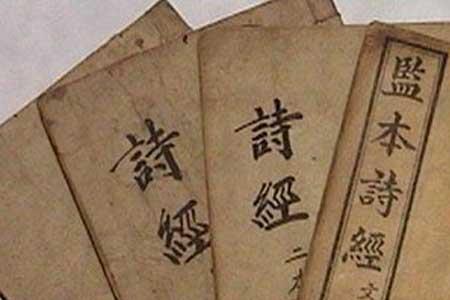 監本詩經
詩經
二本
詩經